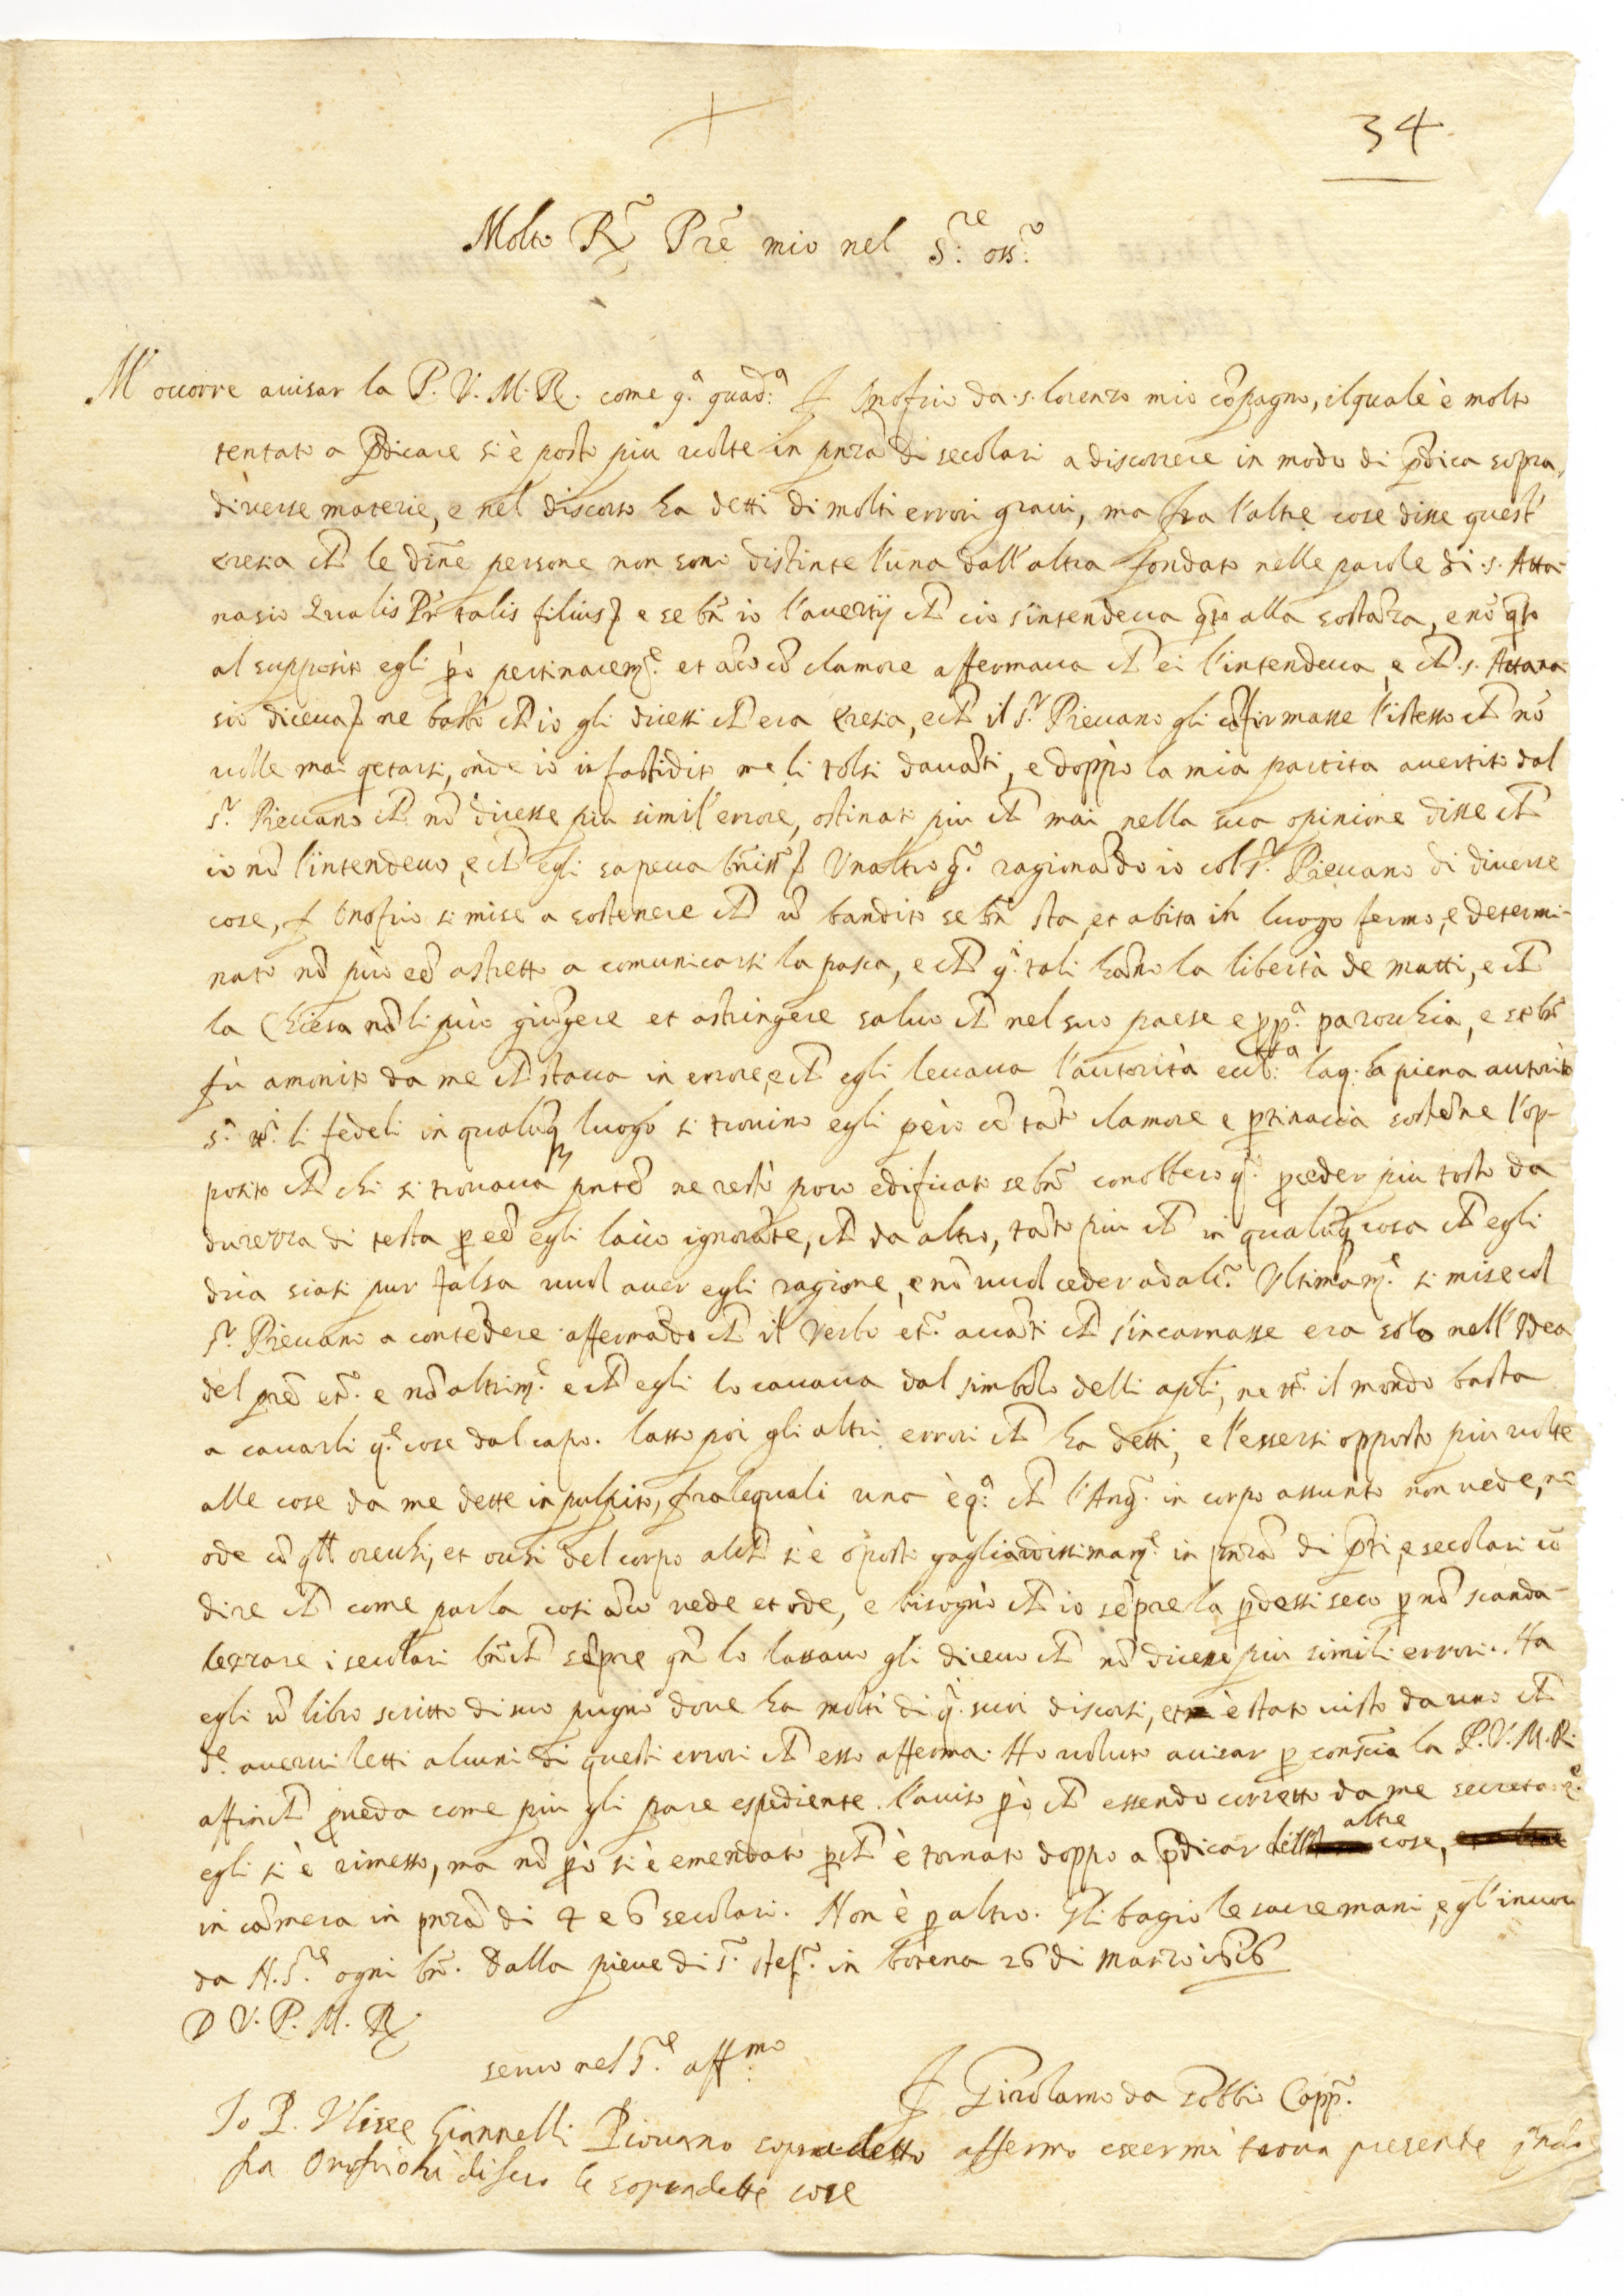 34
Molto R.do Pre mio nel S.re oss.o
M'occorre auisar la P. V. M. R. come q.a quad.a f. Onofrio da s. lorenzo mio cōpagno, ilquale è molto
tentato a p̄dicare si è posto piu uolte in pnza di secolari a discorrere in modo di p̄dica sopra
diuerse materie, e nel discorso ha detti di molti errori graui, ma fra l'altre cose disse quest'
eresia ch le diuine persone non sono distinte l'una dall'altra fondato nelle parole di s. Atta-
nasio Qualis Pr talis filius, e se bn io l'auertij ch cio s'intendeua qto alla sostāza, e nō qto
al supposito egli po pertinacem.e et āco cō clamore affermaua ch ei l'intendeua, e ch s. Attana
sio diceua, ne bastò ch io gli dicessi ch era eresia, e ch il S.r Pieuano gli cōfirmasse l'istesso ch nō
uolle mai qetarsi, onde io infastidito me li tolsi dauāti, e doppò la mia partita auertito dal
S.r Pieuano ch nō dicesse piu simil'errore, ostinato piu ch mai nella sua opinione disse ch
io nō l'intendeuo, e ch egli sapeua bnissō. Unaltro g.o ragionādo io col S.r Pieuano di diuerse
cose, f. Onofrio si mise a sostenere ch ū bandito se bn sta, et abita in luogo fermo, e determi-
nato nō può eē astretto a comunicarsi la pasca, e ch q.i tali hāno la libertà de matti, e ch
la Chiesa nō li può giūgere et astringere saluo ch nel suo paese e ppa parochia, e se bn
fù amonito da me ch staua in errore, e ch egli leuaua l'autorità eccl.ta laq. ha piena autorità
s.a tt.i li fedeli in qualūq luogo si trouino egli però cō tāto clamore e ptinaccia sostēne l'op-
posito ch chi si trouaua pnte ne restò poco edificato se bn conobbero q.o pceder piu tosto da
durezza di testa p eē egli laico ignorāte, ch da altro, tāto piu ch in qualūq cosa ch egli
dica siasi pur falsa uuol auer egli ragione, e nō uuol ceder ad alc.o Ultimam.e si mise col
S.r Pieuano a contēdere affermādo ch il Verbo et.o auāti ch s'incarnasse era solo nell'Idea
del pre et.o e nō altrim.e e ch egli lo cauaua dal simbolo delli apli, ne tt.o il mondo basta
a cauarli q.e cose dal capo. lasso poi gli altri errori ch ha detti, e l'essersi opposto piu uolte
alle cose da me dette in pulpito, fra lequali una è q.a ch l'Ang.o in corpo assunto non uede, nè
ode cō gli orecchi, et occhi del corpo alch si è oposto gagliardissimam.e in pnza di pti, e secolari cō
dire ch come parla cosi āco uede et ode, e bisognò ch io sēpre la pdessi seco p nō scanda-
lezzare i secolari bn ch sēpre qn lo lassauo gli diceuo ch nō dicesse piu simili errori. Ha
egli ū libro scritto di suo pugno doue ha molti di q.i suoi discorsi, et è stato uisto da uno ch
d.e auerui letti alcuni di questi errori ch esso afferma. Ho uoluto auisar p conscia la P. V. M. R.
affinch pueda come piu gli pare espediente. l'auiso po ch essendo corretto da me secretam.e
egli si è rimesso, ma nō po si è emendato pch è tornato doppo a p̄dicar altre cose,
in cāmera in pnza di 4 e 6 secolari. Non è p altro. Gli bagio le sacre mani, e gl'inuoco
da N. S.re ogni bn. Dalla pieue di S.o Stef.o in botena 26 di Marzo 1626
D V. P. M. R.
seruo nel S.re aff.mo
f. Girolamo da Gobbio Capp.o
Io P. Ulisse Giannelli Piouano sopradetto affermo essermi trouā presente qndo
fra Onofrio hà discero le sopradette cose